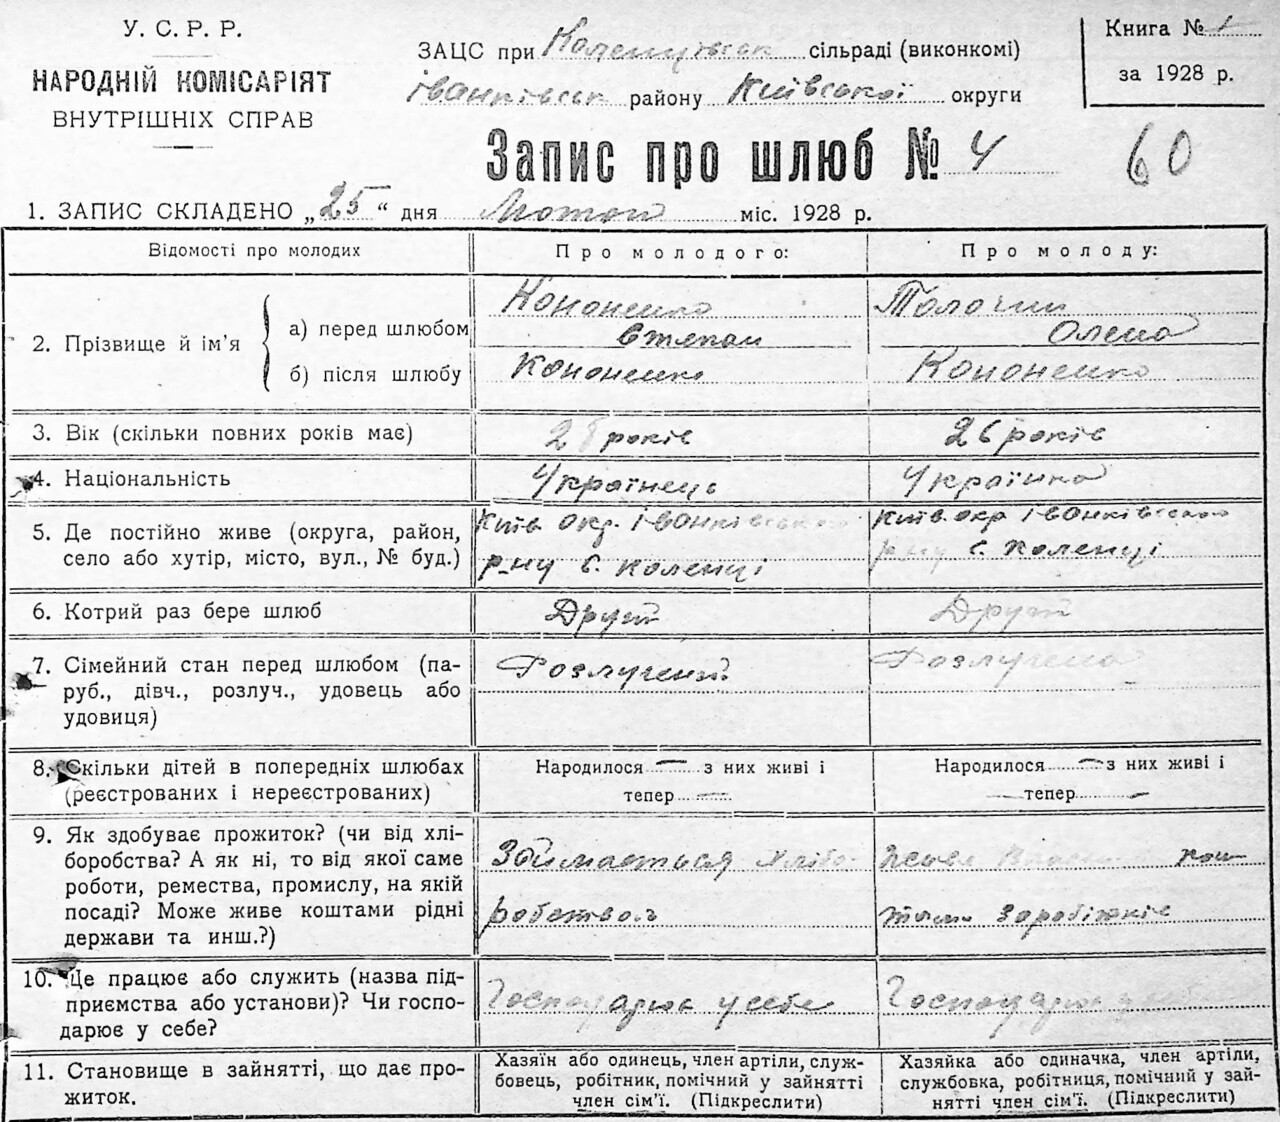 У. С. Р. Р.
НАРОДНІЙ КОМІСАРІЯТ
ВНУТРІШНІХ СПРАВ
ЗАЦС при сільраді (виконкомі)
Іванківськ району Київської округи
Книга №
за 1928 р.
Запис про шлюб № 4
60
1. ЗАПИС СКЛАДЕНО „25“ дня Лютого міс. 1928 р.
Відомості про молодих
Про молодого:
Про молоду:
2. Прізвище й ім'я
а) перед шлюбом
Кононенко
Степан
Толочин
Олена
б) після шлюбу
Кононенко
Кононенко
3. Вік (скільки повних років має)
років
26 років
4. Національність
Українець
Українка
5. Де постійно живе (округа, район,
село або хутір, місто, вул., № буд.)
Київ. окр. Іванківського
р-ну с. Коленці
Київ. окр. Іванківського
р-ну с. Коленці
6. Котрий раз бере шлюб
Другий
Другий
7. Сімейний стан перед шлюбом (па-
руб., дівч., розлуч., удовець або
удовиця)
Розлучений
Розлучена
8. Скільки дітей в попередніх шлюбах
(реєстрованих і нереєстрованих)
Народилося — з них живі і
тепер —
Народилося — з них живі і
тепер —
9. Як здобуває прожиток? (чи від хлі-
боробства? А як ні, то від якої саме
роботи, ремества, промислу, на якій
посаді? Може живе коштами рідні
держави та инш.?)
Займається хлібо-
робством
кош-
тами заробітків
10. Це працює або служить (назва під-
приємства або установи)? Чи госпо-
дарює у себе?
Господарює у себе
Господарює у
11. Становище в зайнятті, що дає про-
житок.
Хазяїн або одинець, член артіли, служ-
бовець, робітник, помічний у зайнятті
член сім'ї. (Підкреслити)
Хазяйка або одиначка, член артіли,
службовка, робітниця, помічний у зай-
нятті член сім'ї. (Підкреслити)